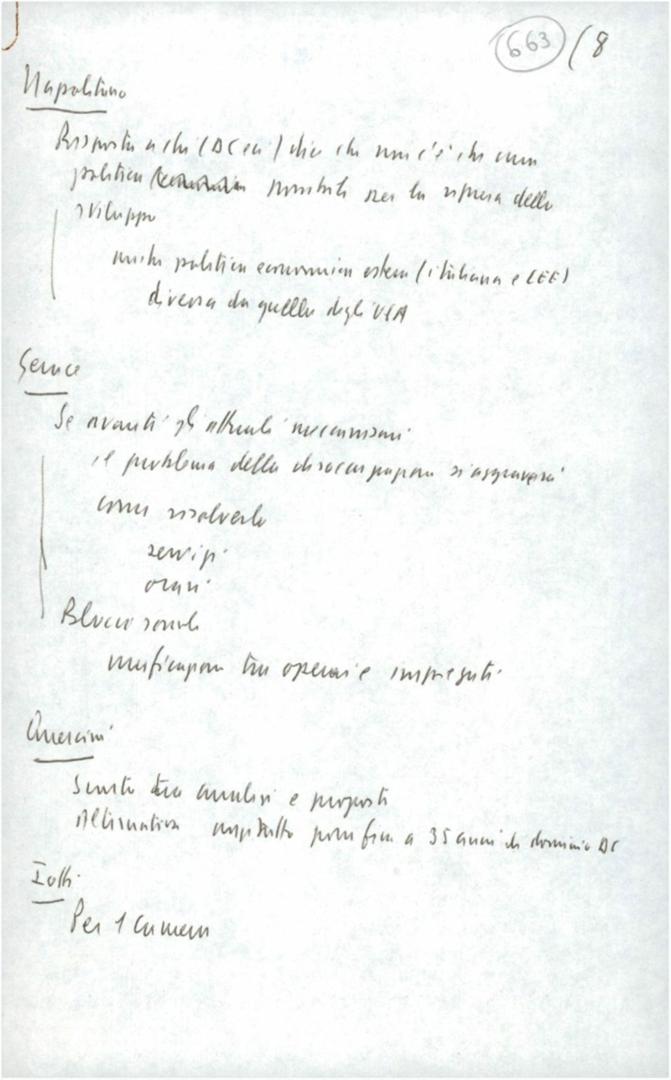 663 (8
Napolitano
Risposta a chi (DC ecc) dice che non c'è che una
politica possibile per la ripresa dello
sviluppo
anche politica economica estera (italiana e CEE)
diversa da quella degli USA
Gerace
Se avanti gli attuali meccanismi
il problema della disoccupazione si aggraverà
come risolverlo
servizi
orari
Blocco sociale
unificazione tra operai e impiegati
Quercini
Scarto tra analisi e proposte
Alternativa porre fine a 35 anni di dominio DC
Iotti
Per 1 Camera